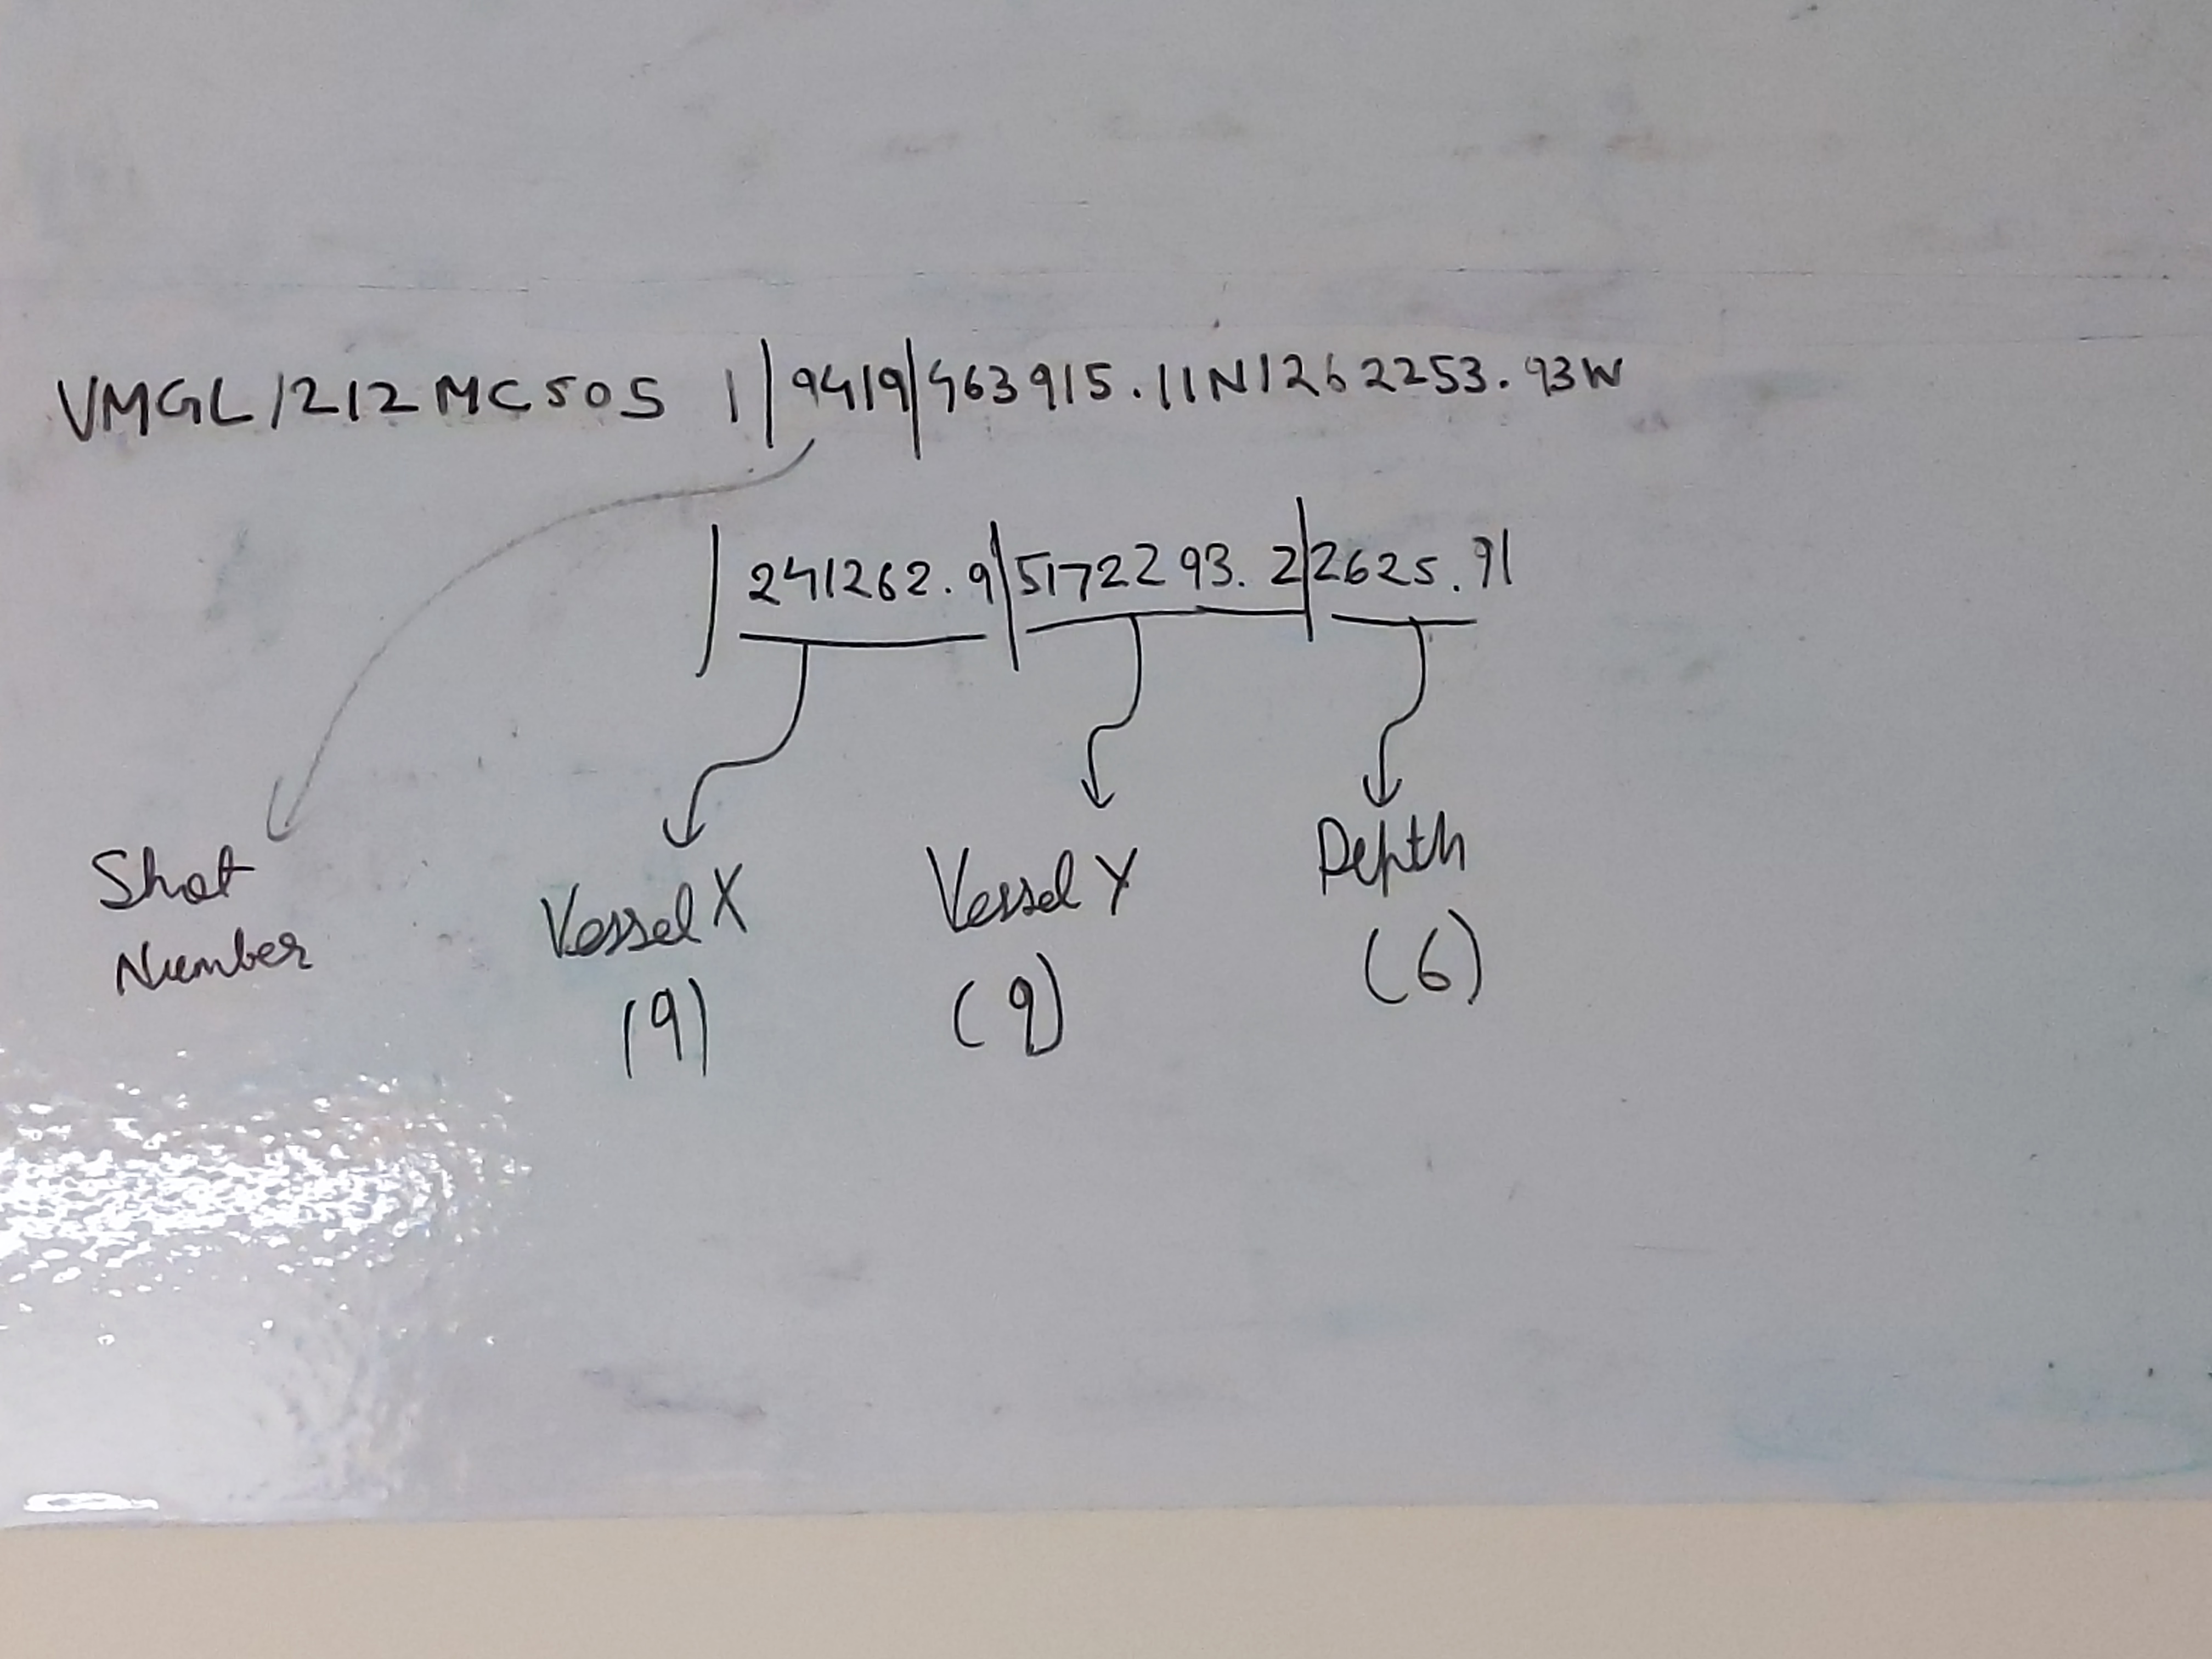 VMGL1212MCS05 1|9419|463915.11N1262253.93W
|241262.9|5172293.2|2625.91
Shot Number
Vessel X
(9)
Vessel Y
(9)
Depth
(6)